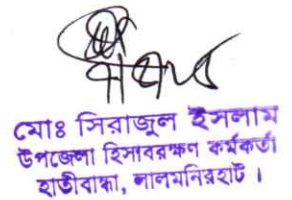 মোঃ সিরাজুল ইসলাম
উপজেলা হিসাবরক্ষণ কর্মকর্তা
হাতীবান্ধা, লালমনিরহাট ।